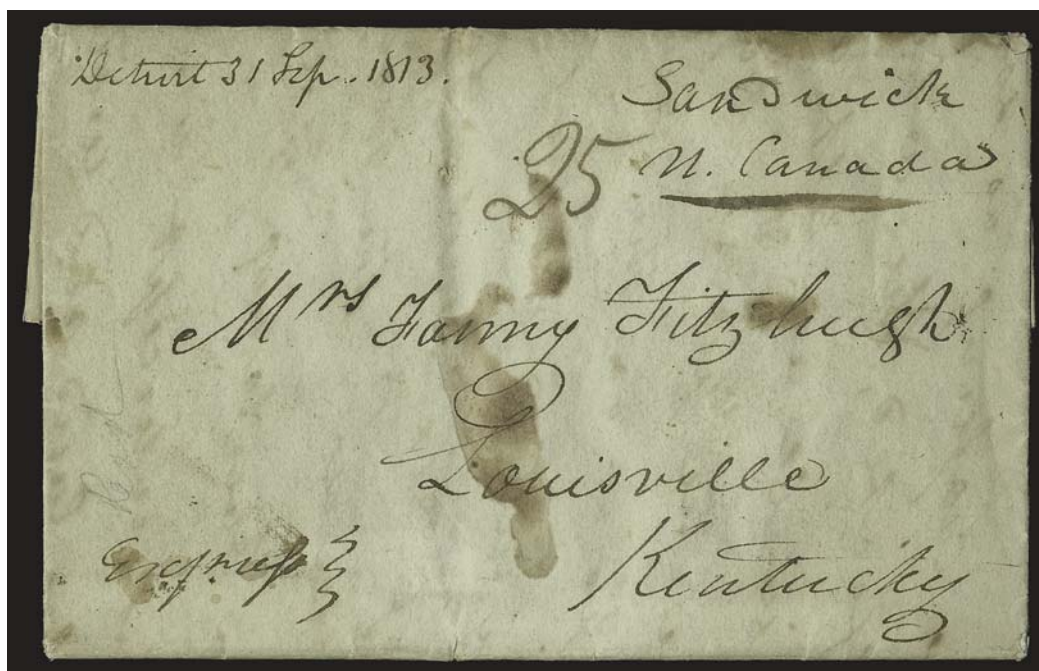 Detroit 31 Sep. 1813.
Sandwich
25 U. Canada
Mrs Fanny Fitzhugh
Louisville
Kentucky
Express